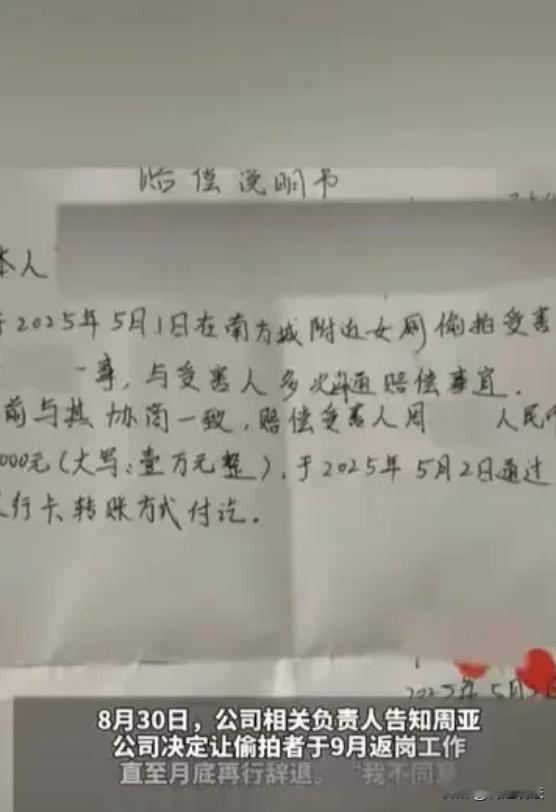 赔偿说明书
本人
于2025年5月1日在南方城附近女厕偷拍受害
一事，与受害人多次沟通赔偿事宜.
前与其协商一致，赔偿受害人周 人民币
000元(大写:壹万元整)，于2025年5月2日通过
行卡转账方式付讫.
2025年5月2日
8月30日，公司相关负责人告知周亚
公司决定让偷拍者于9月返岗工作
直至月底再行辞退。“我不同意